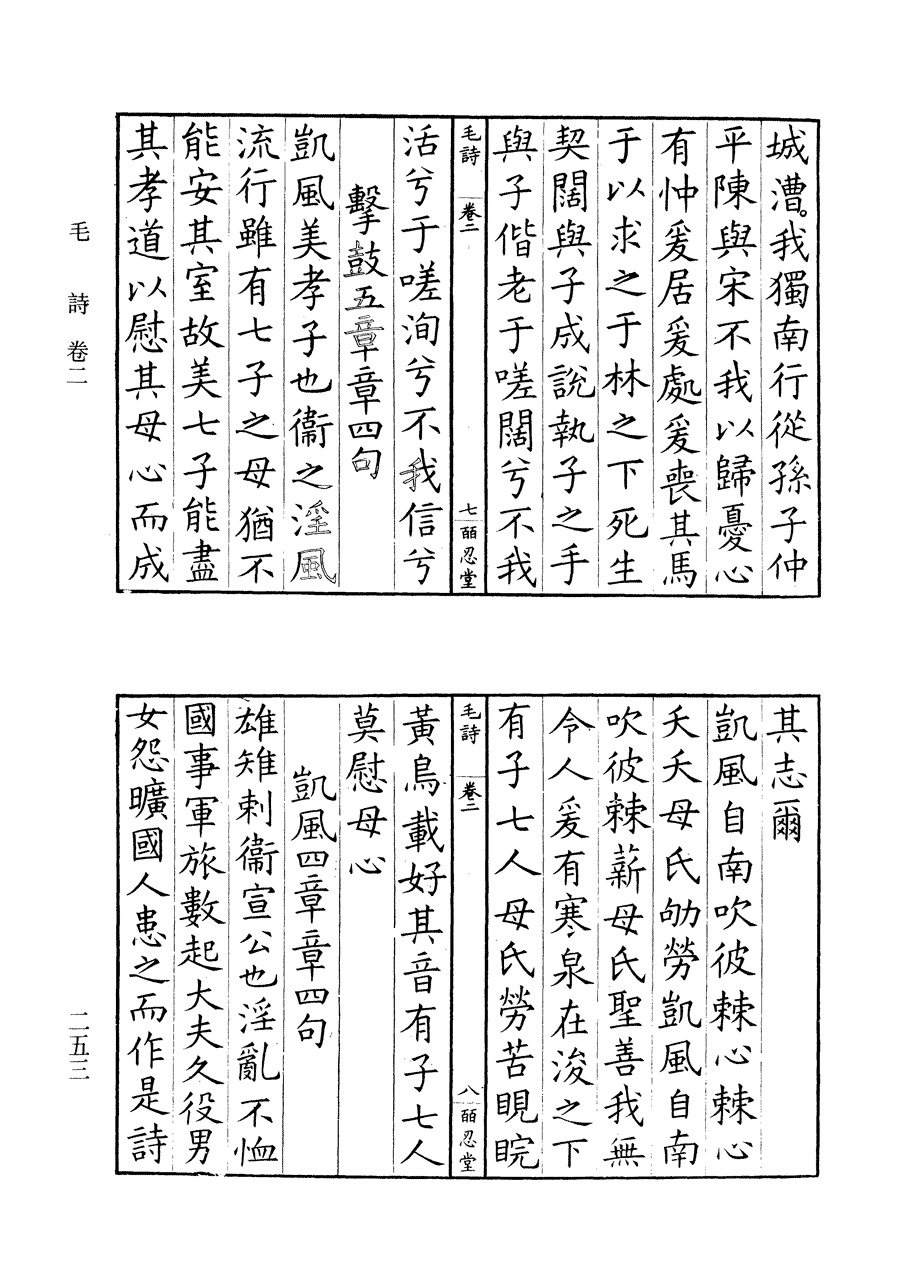 城漕我獨南行從孫子仲
平陳與宋不我以歸憂心
有忡爰居爰處爰喪其馬
于以求之于林之下死生
契闊與子成說執子之手
與子偕老于嗟闊兮不我
毛詩 卷二 七 皕忍堂
活兮于嗟洵兮不我信兮
擊鼓五章章四句
凱風美孝子也衞之淫風
流行雖有七子之母猶不
能安其室故美七子能盡
其孝道以慰其母心而成
其志爾
凱風自南吹彼棘心棘心
夭夭母氏劬勞凱風自南
吹彼棘薪母氏聖善我無
令人爰有寒泉在浚之下
有子七人母氏勞苦睍睆
毛詩 卷二 八 皕忍堂
黃鳥載好其音有子七人
莫慰母心
凱風四章章四句
雄雉刺衞宣公也淫亂不恤
國事軍旅數起大夫久役男
女怨曠國人患之而作是詩
毛詩卷二
二五三